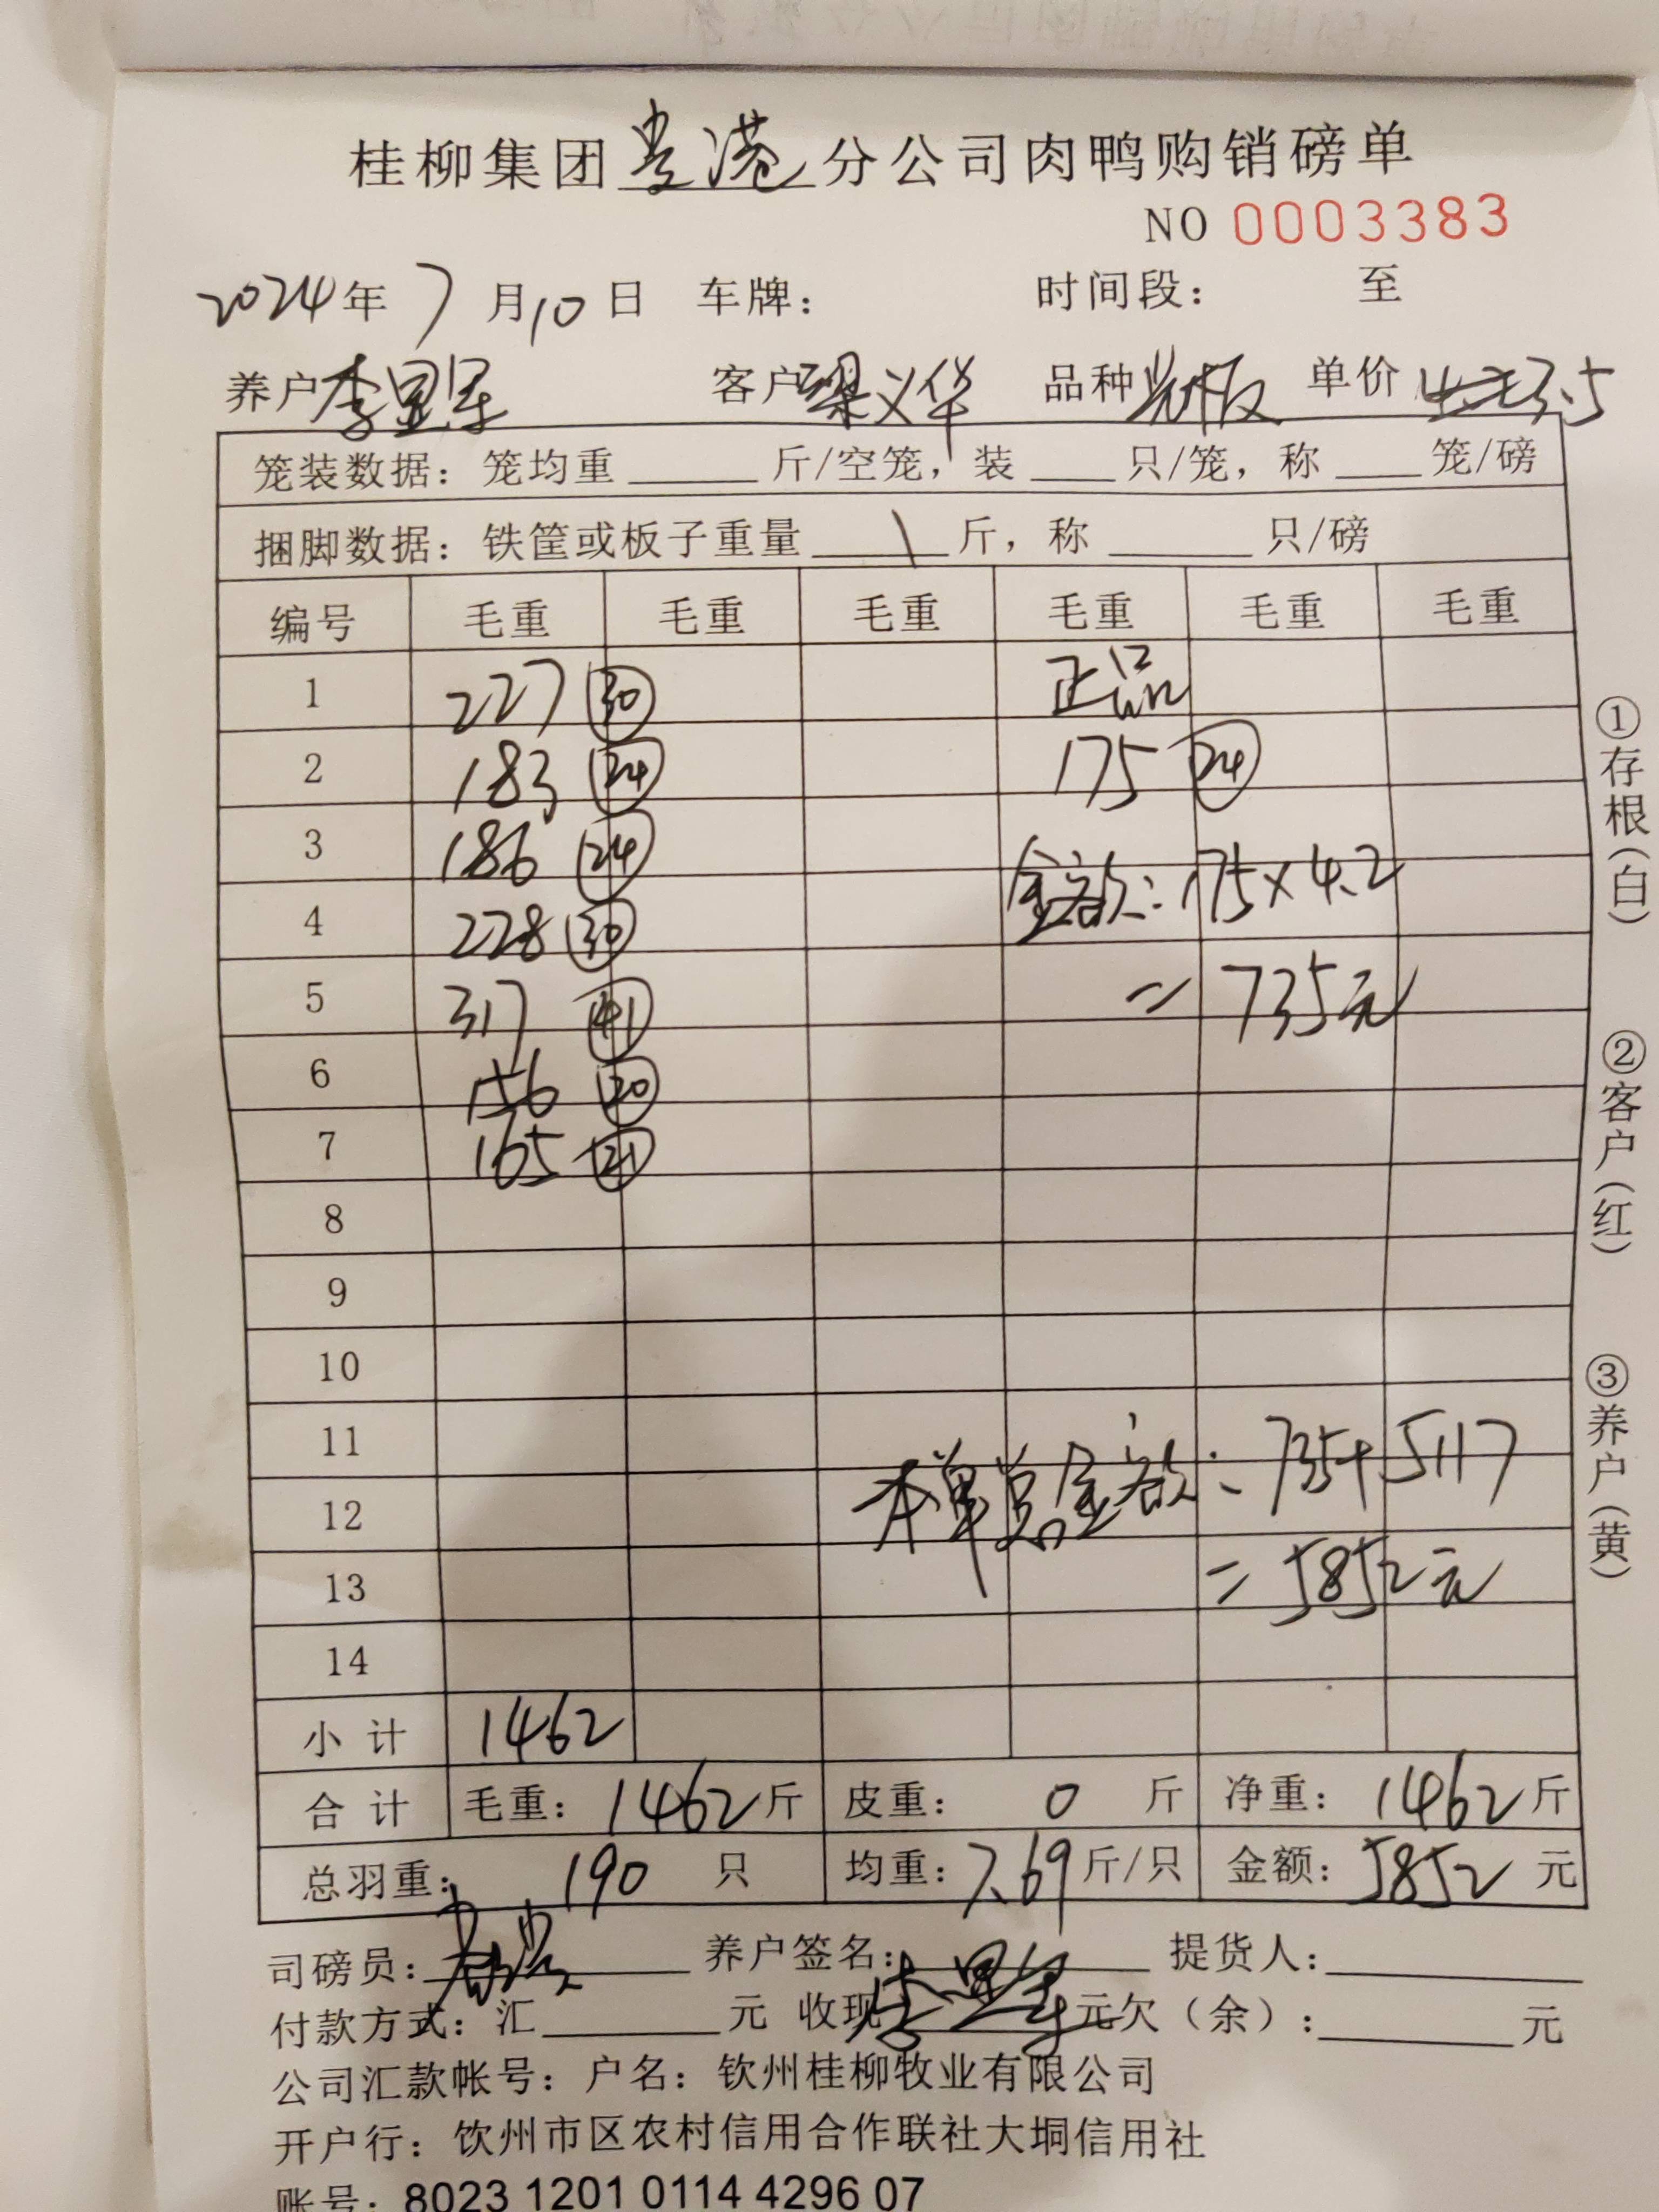 桂柳集团贵港分公司肉鸭购销磅单
NO 0003383
2024年 7月10日 车牌： 时间段： 至
养户 客户 梁义华 品种 光板 单价 3.5
笼装数据：笼均重 斤/空笼，装 只/笼，称 笼/磅
捆脚数据：铁筐或板子重量 \ 斤，称 只/磅
编号 毛重 毛重 毛重 毛重 毛重 毛重
1 227 30 正品
2 183 24 175 24
3 186 24 金额：175×4.2
4 228 30
5 317 41 = 735元
6 156 20
7 165 21
8
9
10
11 本单总金额：735+5117
12
13 = 5852元
14
小计 1462
合计 毛重：1462斤 皮重：0斤 净重：1462斤
总羽重：190只 均重：7.69斤/只 金额：5852元
司磅员： 养户签名： 提货人：
付款方式：汇 元 收现 元欠（余）： 元
公司汇款帐号：户名：钦州桂柳牧业有限公司
开户行：钦州市区农村信用合作联社大垌信用社
账号：8023 1201 0114 4296 07
①存根（白）
②客户（红）
③养户（黄）